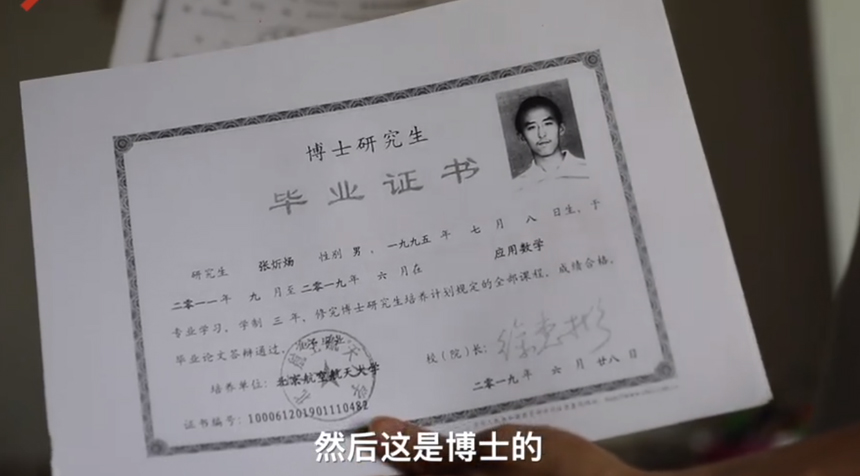 博士研究生
毕业证书
研究生 张炘炀 性别 男、一九九五 年 七 月 八 日生，于
二〇一一年 九 月至二〇一九年 六 月在 应用数学
专业学习，学制 三 年，修完博士研究生培养计划规定的全部课程，成绩合格，
毕业论文答辩通过，准予毕业
培养单位：北京航空航天大学
校（院）长：徐惠彬
证书编号：100061201901110482
二〇一九年 六 月 廿八 日
然后这是博士的